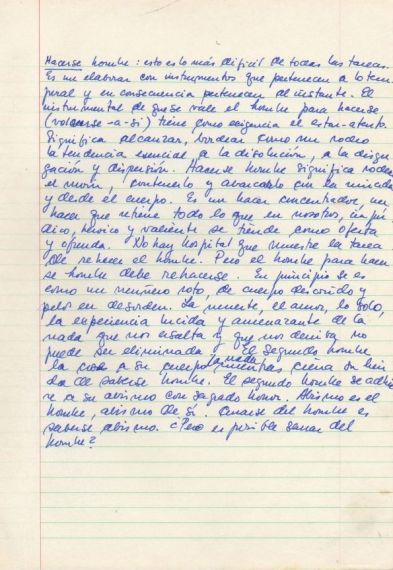 Hacerse hombre: esto es lo más difícil de todas las tareas.
Es un elaborar con instrumentos que pertenecen a lo tem-
poral y en consecuencia pertenecen al instante. El
instrumental de que se vale el hombre para hacerse
(volcarse-a-sí) tiene como exigencia el estar-atento.
Significa alcanzar, bordear como un rodeo
la tendencia esencial a la disolución, a la disgre-
gación y dispersión. Hacerse hombre significa rodear
el morir, contenerlo y abarcarlo con la mirada
y desde el cuerpo. Es un hacer concentrador, un
hacer que retiene todo lo que en nosotros, impú-
dico, heroico y valiente se tiende como oferta
y ofrenda. No hay hospital que muestre la tarea
de rehacer el hombre. Pero el hombre para hacer-
se hombre debe rehacerse. En principio se es
como un muñeco roto, de cuerpo descosido y
pelos en desorden. La muerte, el amor, lo solo,
la experiencia lúcida y amenazante de la
nada que nos exalta y que nos derriba no
puede ser eliminada. El segundo hombre
la cose a su cuerpo mientras cierra su heri-
da de saberse hombre. El segundo hombre se adhie-
re a su abismo con sagrado honor. Abismo es el
hombre, abismo de sí. Curarse del hombre es
saberse abismo. ¿Pero es posible sanar del
hombre?